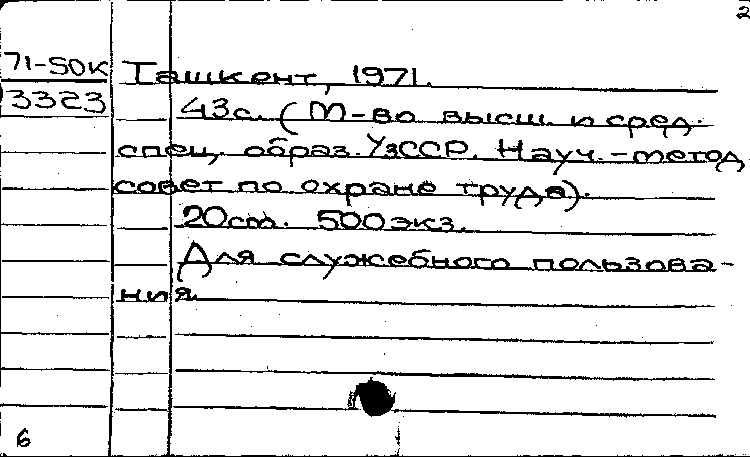 2
71-50К Ташкент, 1971.
3323 43с. (М-во высш. и сред.
спец. образ. УзССР. Науч.-метод.
совет по охране труда).
20cm. 500 экз.
Для служебного пользова-
ния.
6